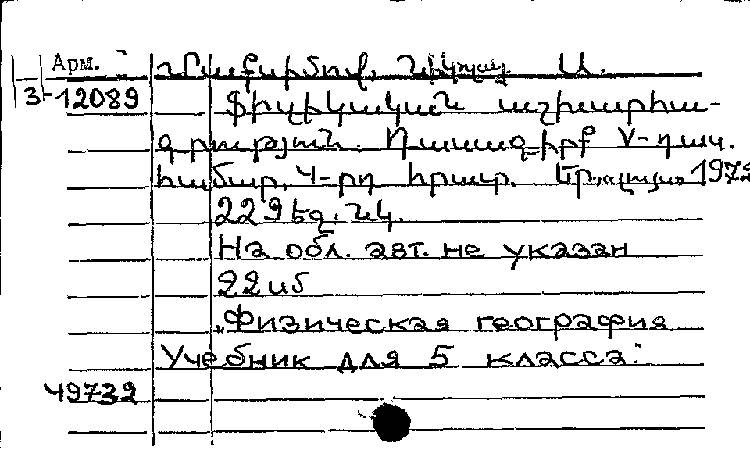 Арм.
Մաքսիմով, Նիկոլայ Ա.
3-12089
Ֆիզիկական աշխարհա-
գրություն. Դասագիրք V-դաս.
համար. 4-րդ հրատ. 1972
229 էջ. նկ.
На обл. авт. не указан
22 սմ
„Физическая география
Учебник для 5 класса"
49732